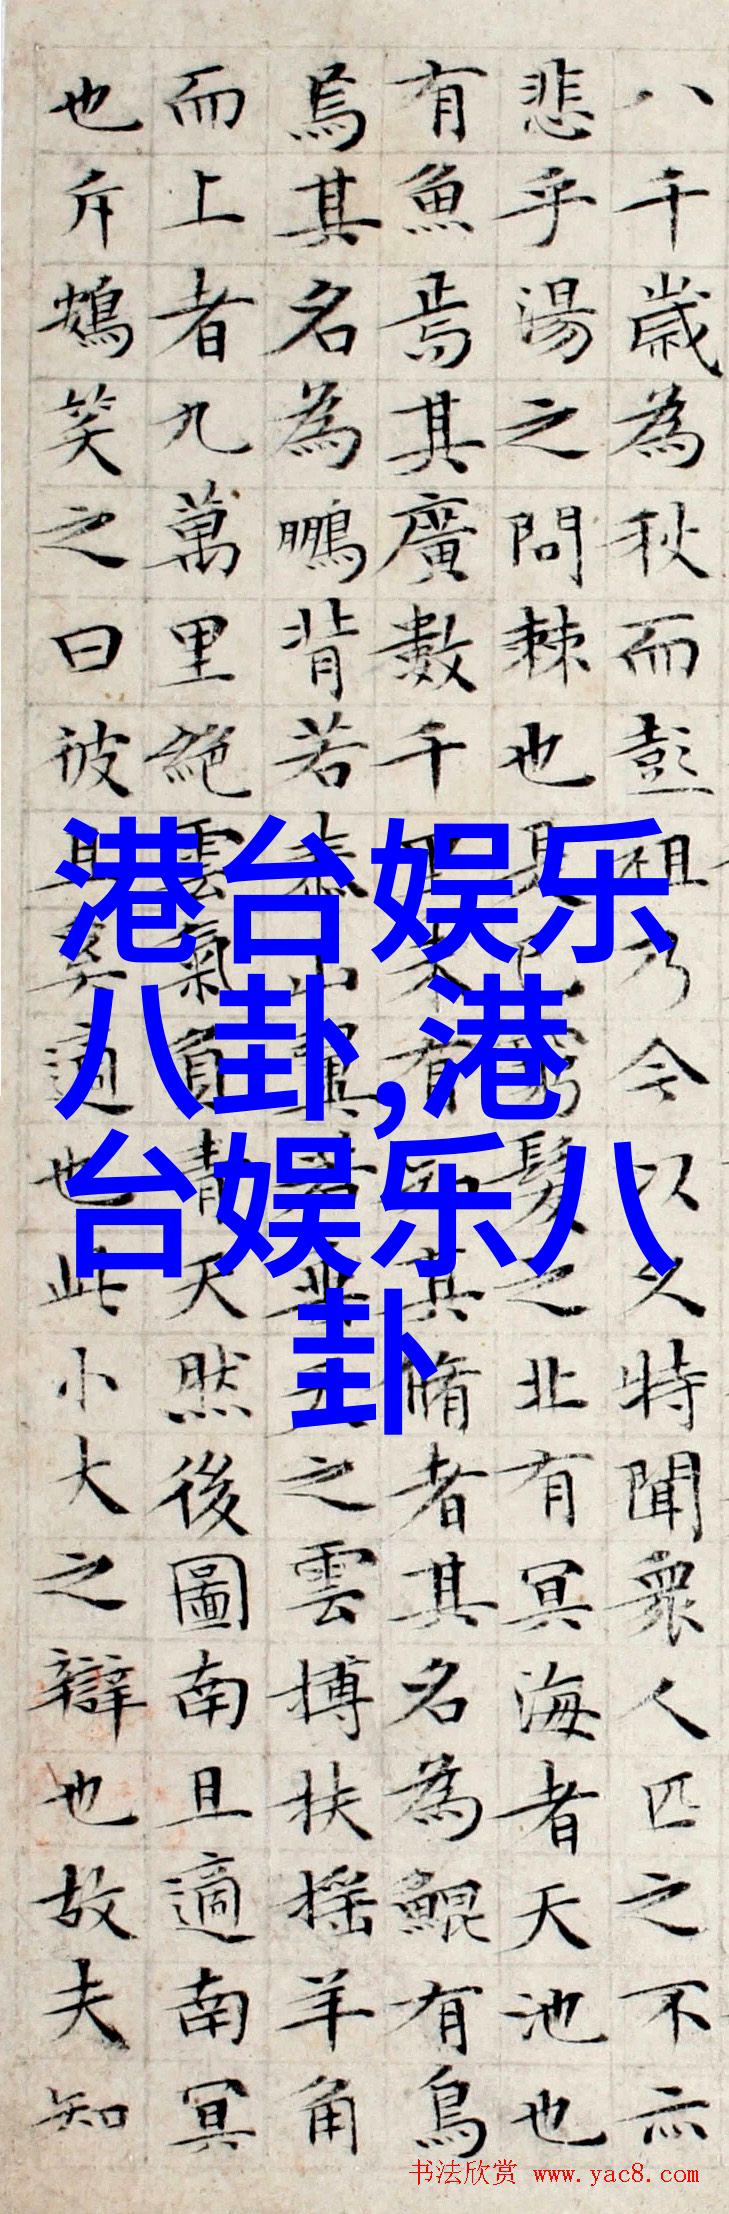 八千歲為秋而彭祖乃今以久特聞衆人匹之不亦
悲乎湯之問棘也是已窮髮之北有冥海者天池也
有魚焉其廣數千里未有知其脩者其名為鯤有鳥
焉其名為鵬背若泰山翼若垂天之雲搏扶搖羊角
而上者九萬里絕雲氣負青天然後圖南且適南冥
也斥鴳笑之曰彼且奚適也此小大之辯也故夫知
港台娱乐
八卦,港
台娱乐八
卦
书法欣赏 www.yac8.com